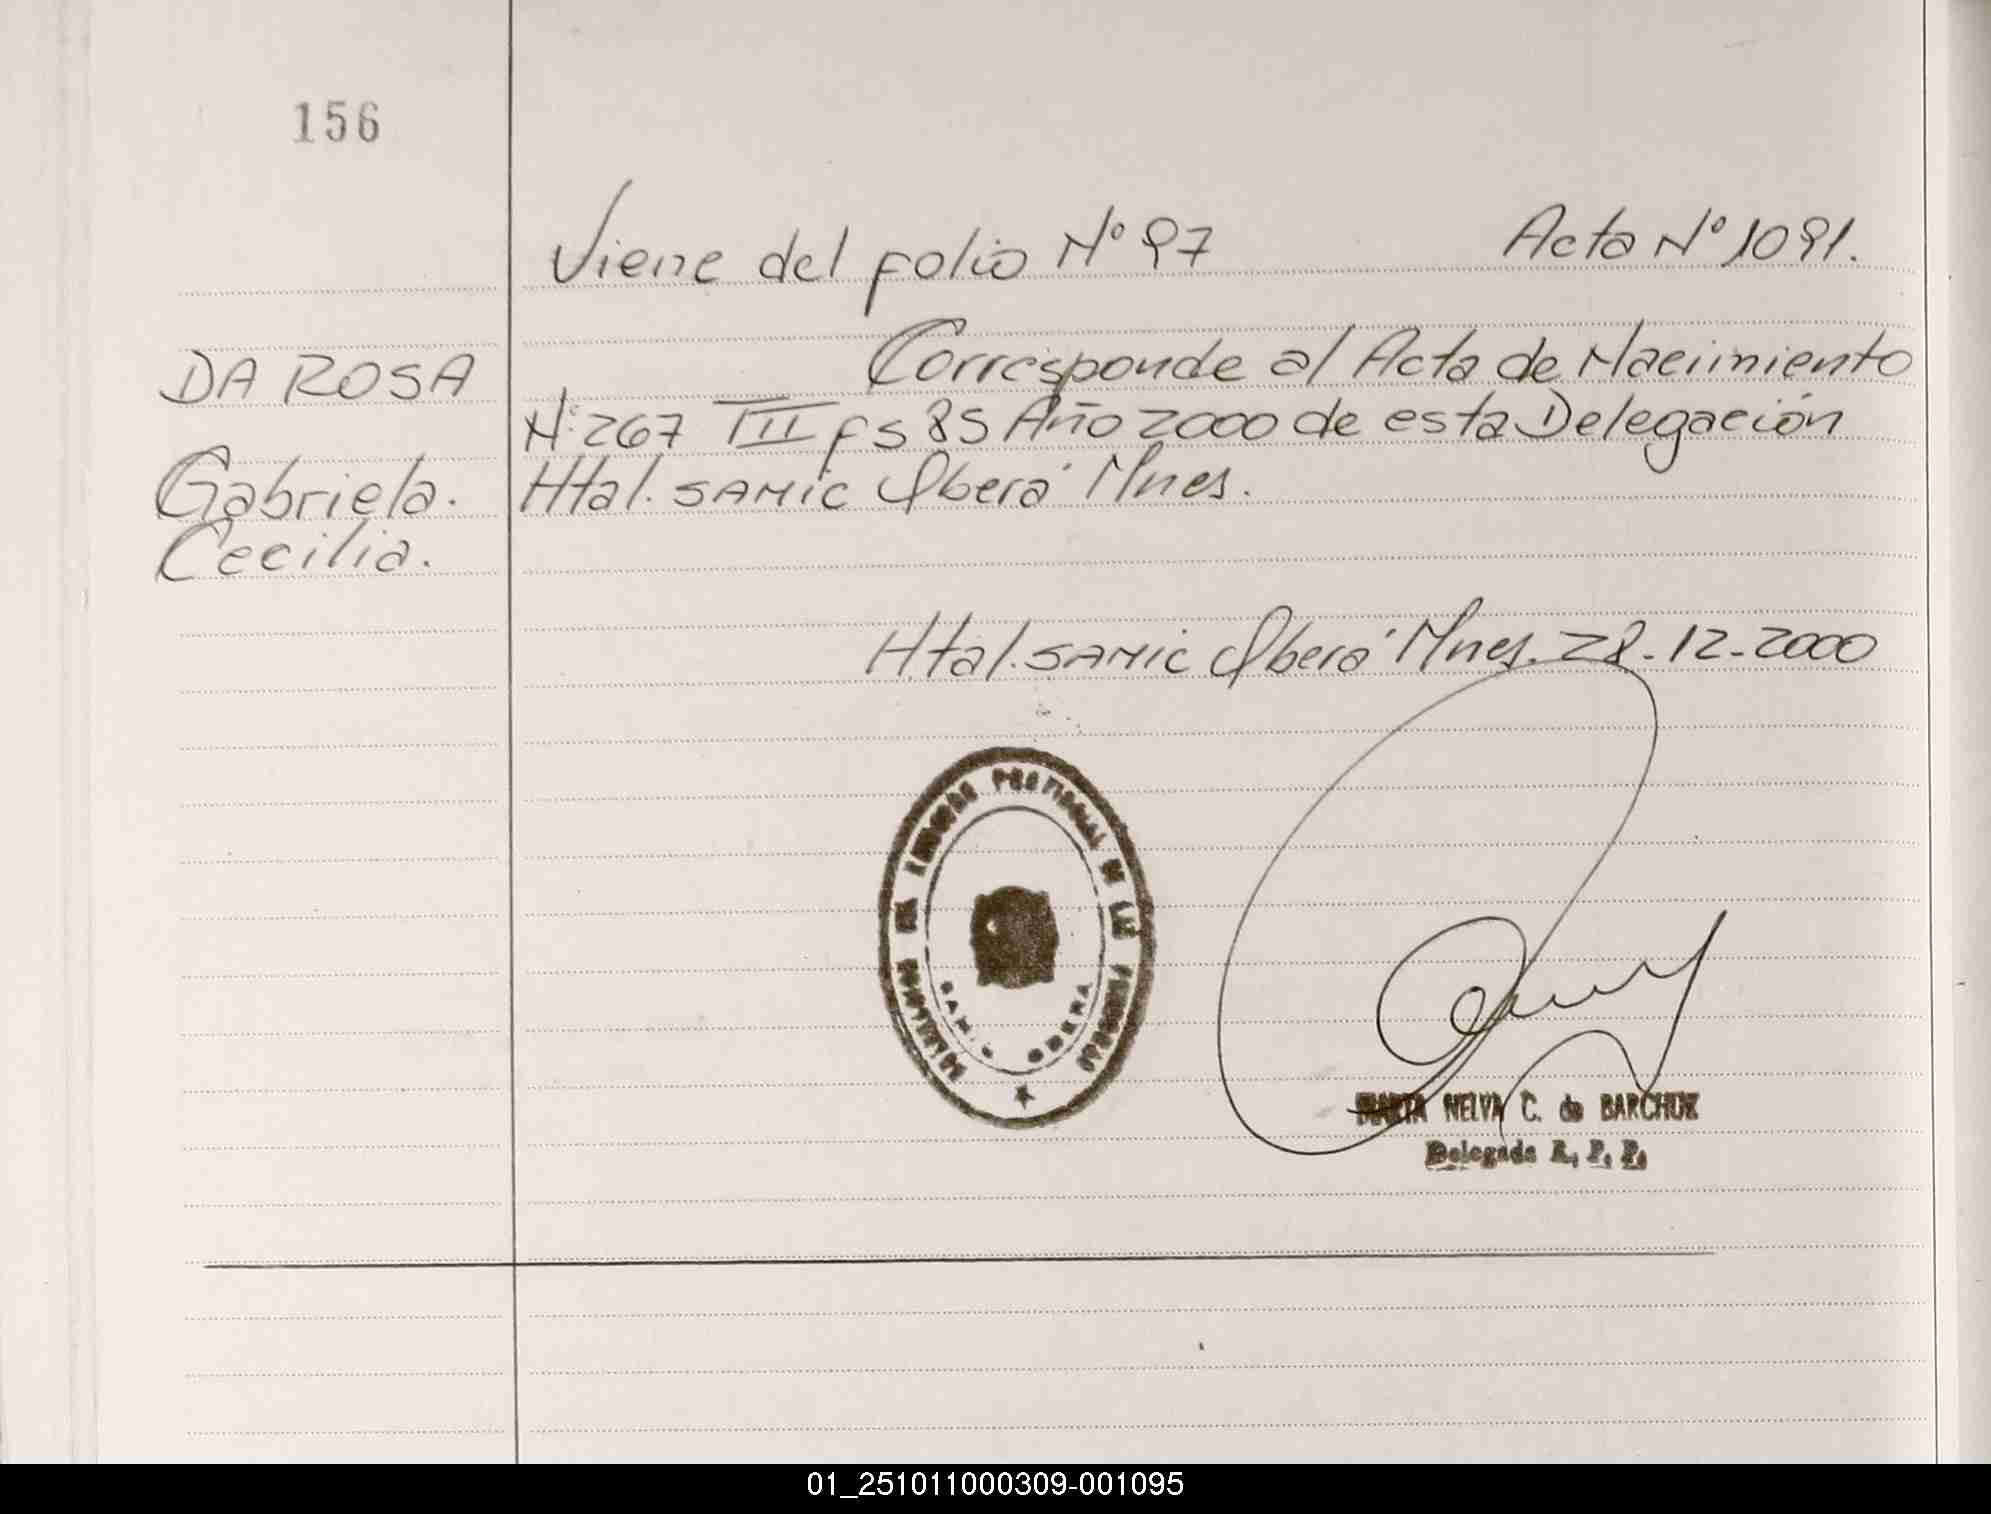 156
Viene del folio Nº 97 Acta Nº 1091.
Corresponde al Acta de Nacimiento
DA ROSA
Nº 267 TIII fs 85 Año 2000 de esta Delegación
Gabriela. Htal. SAMIC Oberá Mnes.
Cecilia.
Htal. SAMIC Oberá Mnes. 28-12-2000
PROVINCIAL DE LAS PERSONAS
SAMIC OBERA
MARTA NELVA C. de BARCHUK
Delegada R. P. P.
01_251011000309-001095